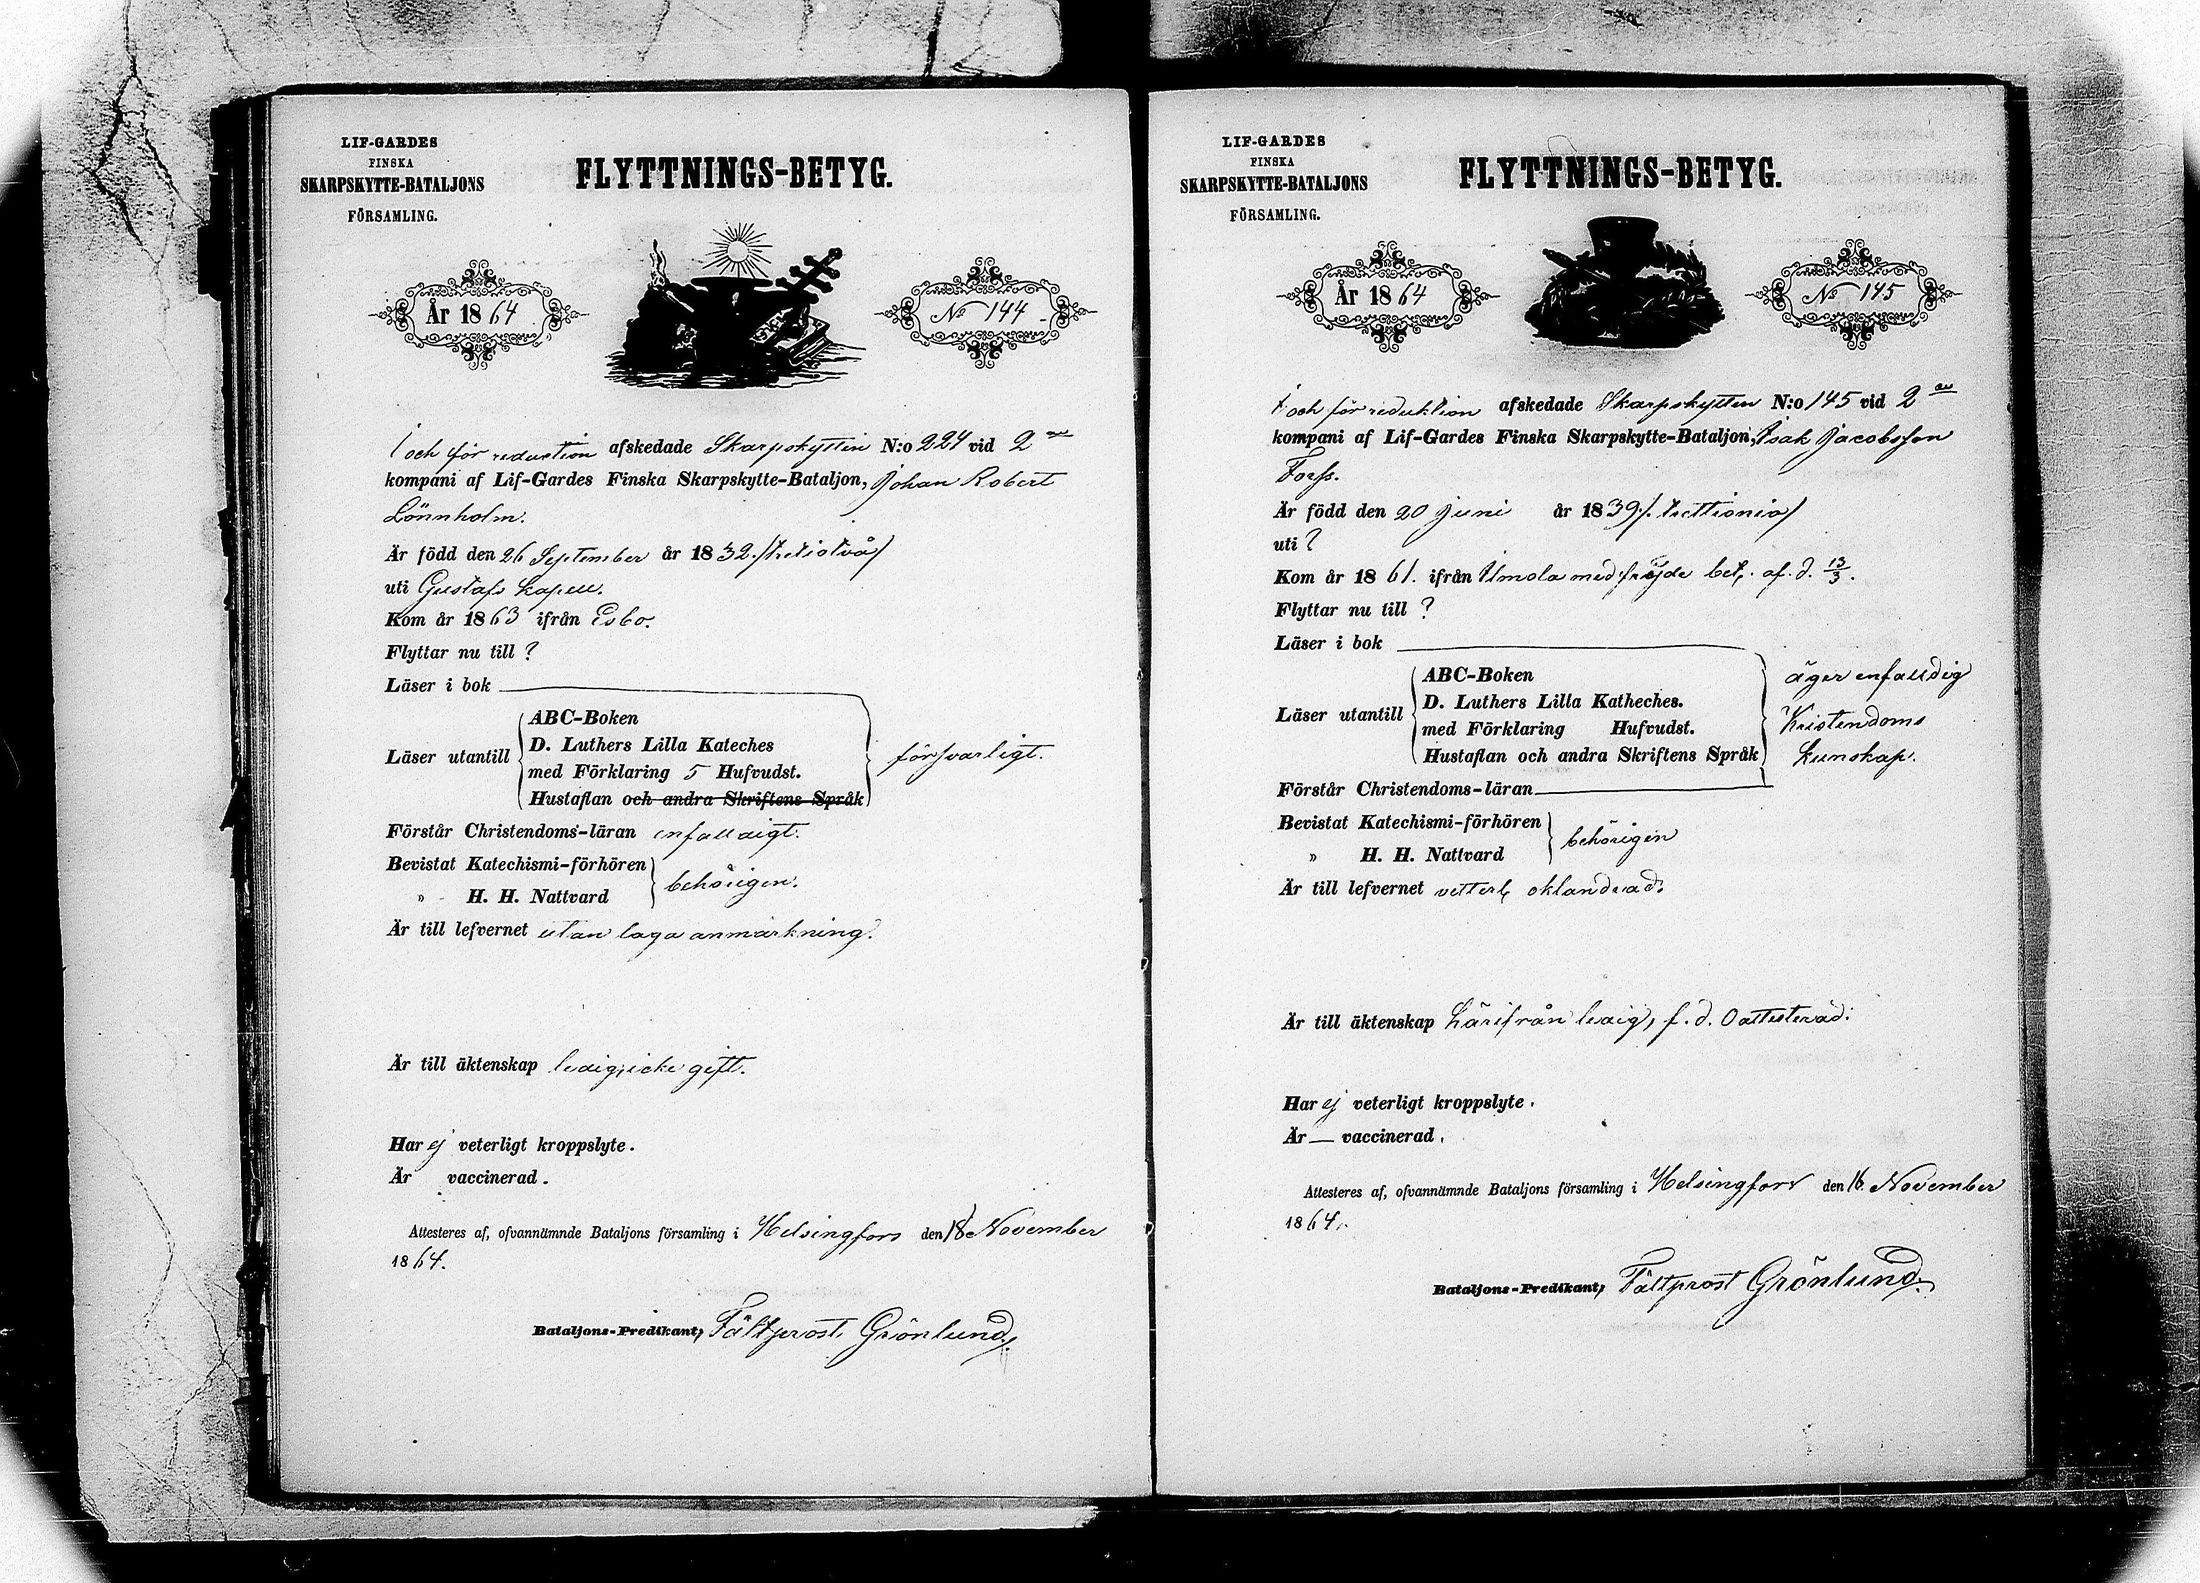 LIF-GARDES
FINSKA
SKARPSKYTTE-BATALJONS
FÖRSAMLING.
FLYTTNINGS-BETYG.
År 1864
No 144
I och för reduction afskedade Skarpskytten N:o 224 vid 2
kompani af Lif-Gardes Finska Skarpskytte-Bataljon, Johan Robert
Lönnholm.
Är född den 26 September år 1832./tretiotvå/
uti Gustafs kapell.
Kom år 1863 ifrån Esbo.
Flyttar nu till ?
Läser i bok
ABC-Boken
D. Luthers Lilla Kateches
Läser utantill
försvarligt.
med Förklaring 5 Hufvudst.
Hustaflan och andra Skriftens Språk
Förstår Christendoms-läran enfaldigt.
Bevistat Katechismi-förhören
behörigen.
" H. H. Nattvard
Är till lefvernet utan laga anmärkning.
Är till äktenskap ledig, icke gift.
Har ej veterligt kroppslyte.
Är vaccinerad.
Attesteres af, ofvannämnde Bataljons församling i Helsingfors den 18 November
1864.
Bataljons-Predikant, Fältprost Grönlund.
LIF-GARDES
FINSKA
SKARPSKYTTE-BATALJONS
FÖRSAMLING.
FLYTTNINGS-BETYG.
År 1864
No 145
I och för reduktion afskedade Skarpskytten N:o 145 vid 2
kompani af Lif-Gardes Finska Skarpskytte-Bataljon, Isak Jacobsson
Forss.
Är född den 20 Juni år 1839/. trettionio/
uti ?
Kom år 1861. ifrån Ilmola med frejde bet. af. d. 13/3.
Flyttar nu till ?
Läser i bok
ABC-Boken
äger enfaldig
D. Luthers Lilla Katheches.
Läser utantill
Kristendoms
med Förklaring Hufvudst.
Hustaflan och andra Skriftens Språk
kunskap.
Förstår Christendoms-läran
Bevistat Katechismi-förhören
behörigen
" H. H. Nattvard
Är till lefvernet vetterl. oklandrad.
Är till äktenskap härifrån ledig, f. d. Oattesterad.
Har ej veterligt kroppslyte.
Är — vaccinerad.
Attesteres af, ofvannämnde Bataljons församling i Helsingfors den 16 November
1864.
Bataljons-Predikant, Fältprost Grönlund.